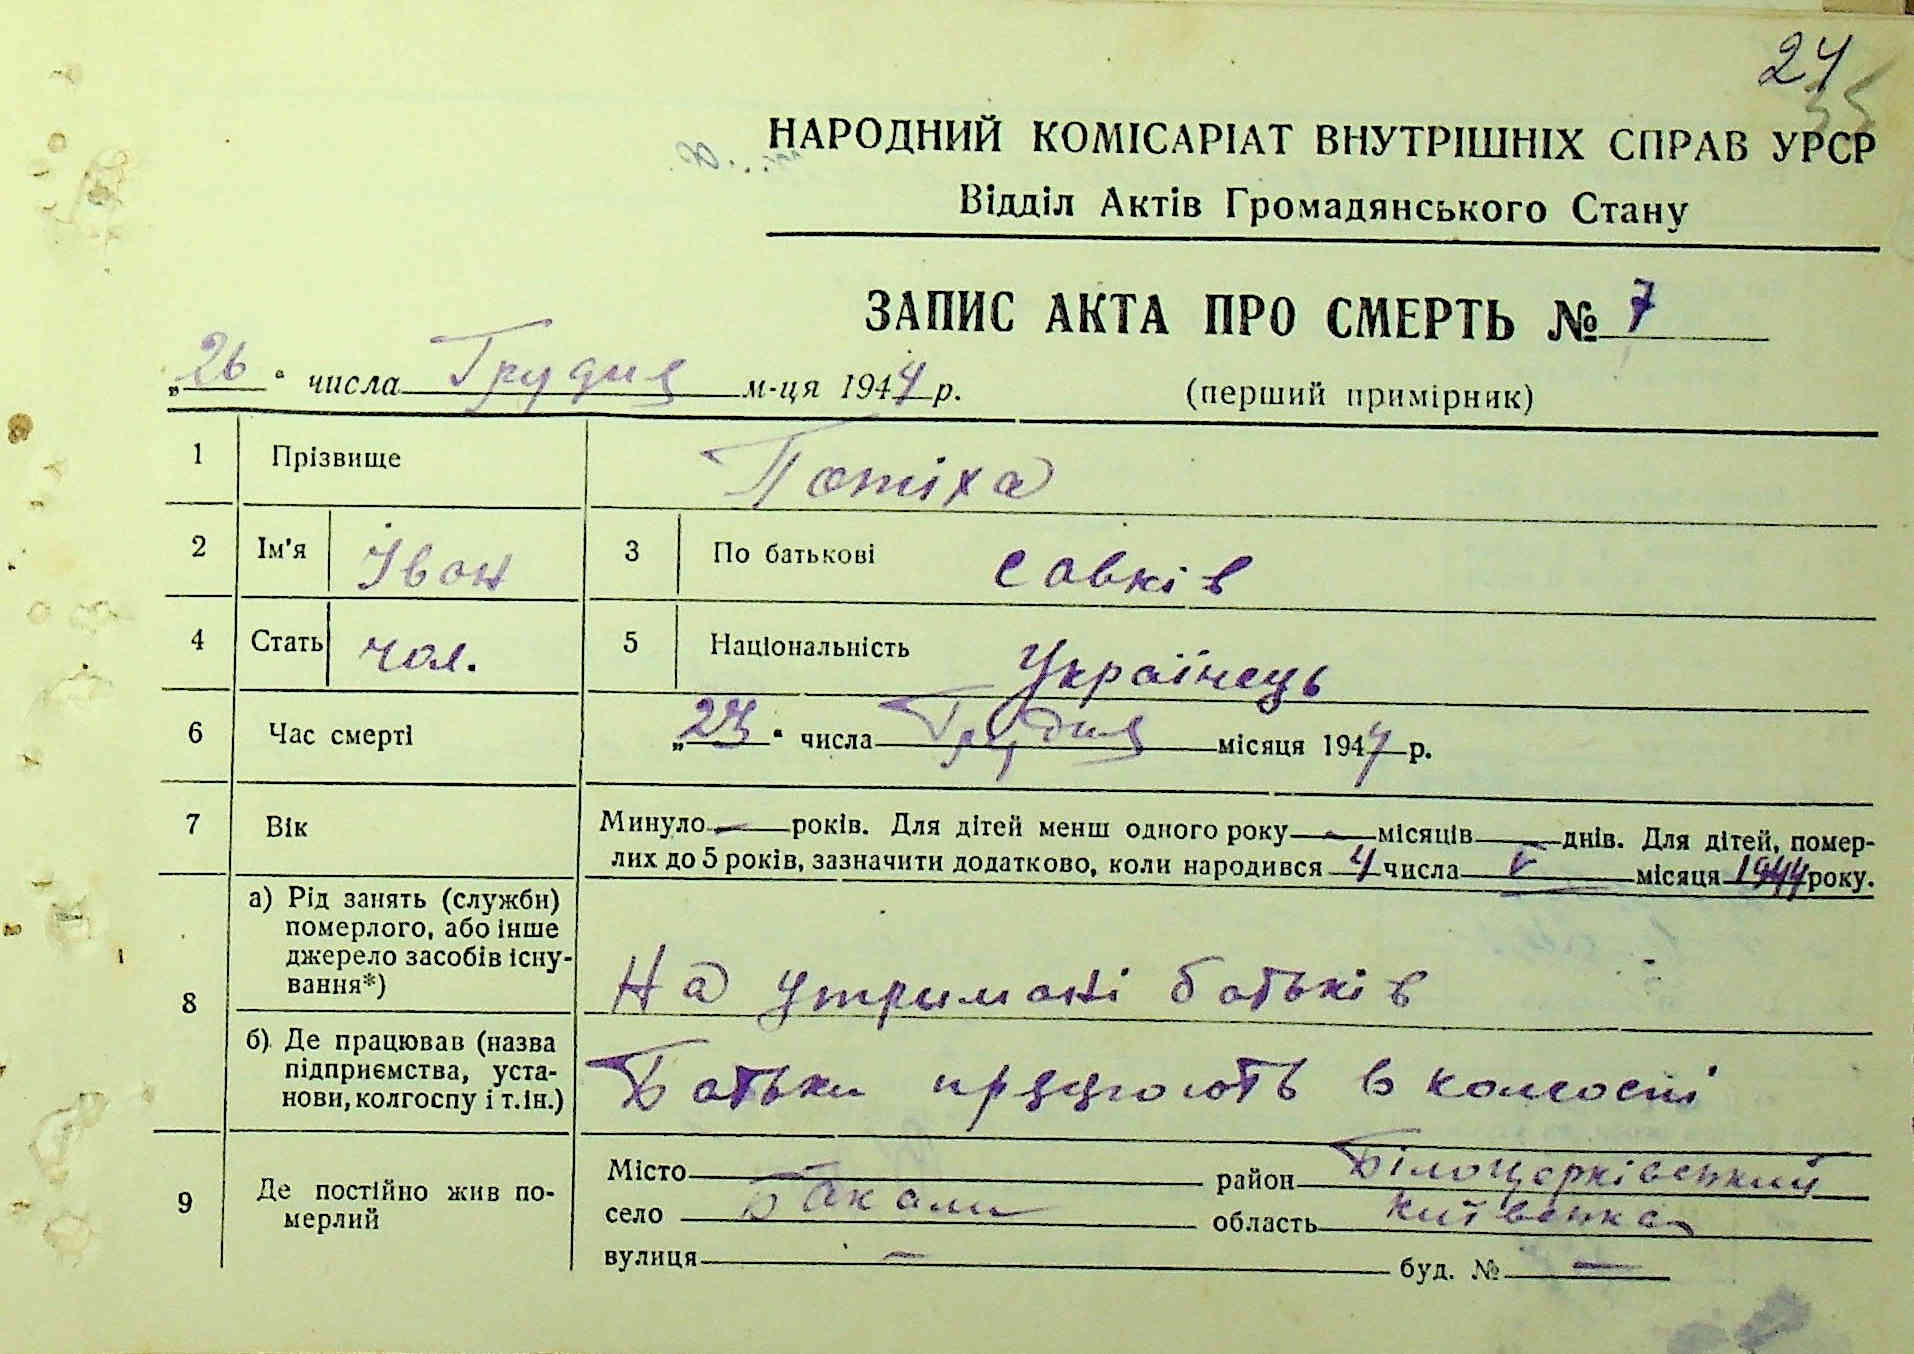 24
35
НАРОДНИЙ КОМІСАРІАТ ВНУТРІШНІХ СПРАВ УРСР
Відділ Актів Громадянського Стану
ЗАПИС АКТА ПРО СМЕРТЬ № 7
„26“ числа Грудня м-ця 1944 р. (перший примірник)
1 Прізвище Потіха
2 Ім'я Іван 3 По батькові Савків
4 Стать чол. 5 Національність Українець
6 Час смерті „23“ числа Грудня місяця 1944 р.
7 Вік Минуло — років. Для дітей менш одного року — місяців — днів. Для дітей, помер-
лих до 5 років, зазначити додатково, коли народився 4 числа V місяця 1944 року.
8 а) Рід занять (служби)
померлого, або інше
джерело засобів існу-
вання*) На утримані батьків
б) Де працював (назва
підприємства, уста-
нови, колгоспу і т.ін.) Батьки працюють в колгоспі
9 Де постійно жив по-
мерлий
Місто — район Білоцерківський
село область Київська
вулиця — буд. № —